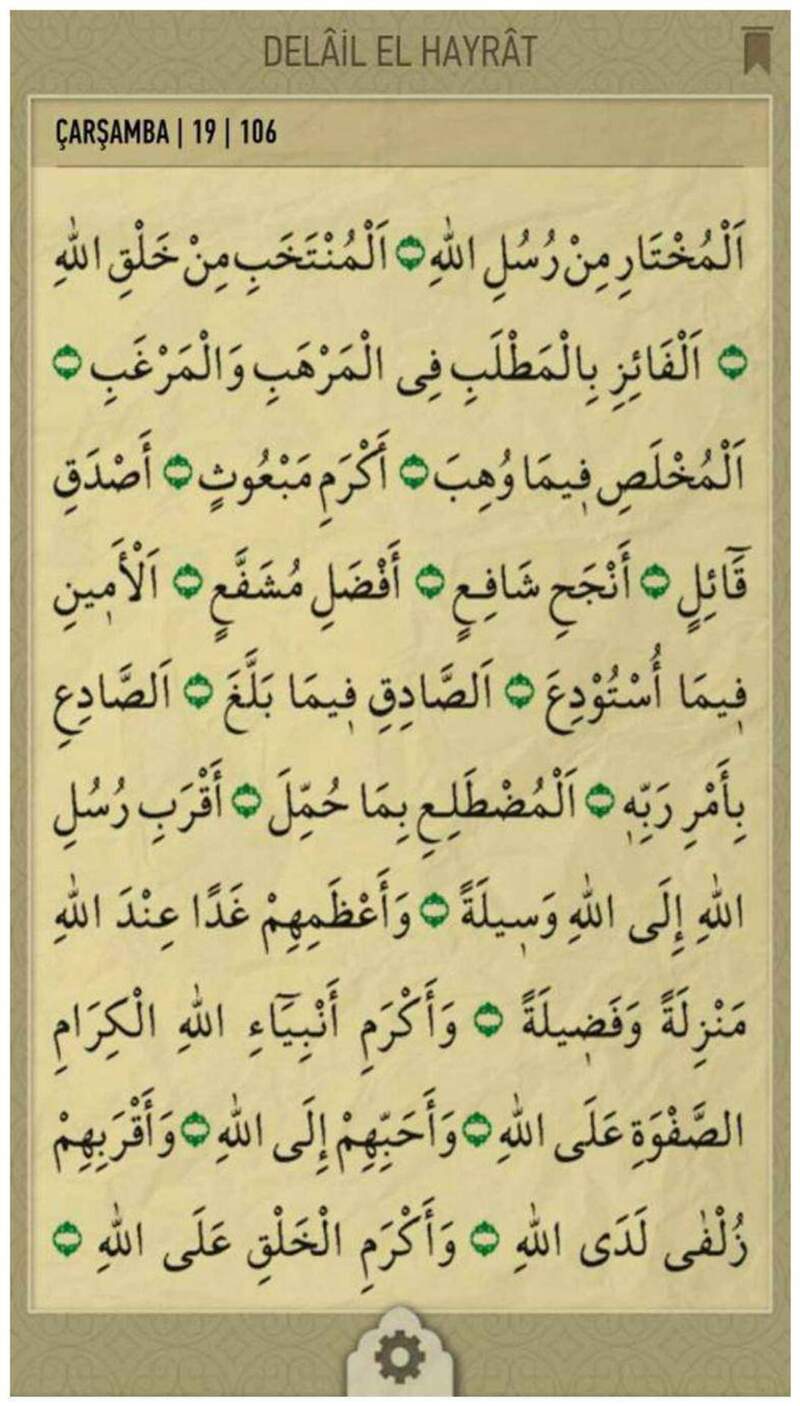 DELÂİL EL HAYRÂT
ÇARŞAMBA | 19 | 106
اَلْمُخْتَارِ مِنْ رُسُلِ اللهِ ۝ اَلْمُنْتَخَبِ مِنْ خَلْقِ اللهِ
۝ اَلْفَائِزِ بِالْمَطْلَبِ فِى الْمَرْهَبِ وَالْمَرْغَبِ ۝
اَلْمُخْلَصِ فِيمَا وُهِبَ ۝ أَكْرَمِ مَبْعُوثٍ ۝ أَصْدَقِ
قَٓائِلٍ ۝ أَنْجَحِ شَافِعٍ ۝ أَفْضَلِ مُشَفَّعٍ ۝ اَلْأَمِينِ
فِيمَا أُسْتُوْدِعَ ۝ اَلصَّادِقِ فِيمَا بَلَّغَ ۝ اَلصَّادِعِ
بِأَمْرِ رَبِّهٖ ۝ اَلْمُضْطَلِعِ بِمَا حُمِّلَ ۝ أَقْرَبِ رُسُلِ
اللهِ إِلَى اللهِ وَسِيلَةً ۝ وَأَعْظَمِهِمْ غَدًا عِنْدَ اللهِ
مَنْزِلَةً وَفَضِيلَةً ۝ وَأَكْرَمِ أَنْبِيَٓاءِ اللهِ الْكِرَامِ
الصَّفْوَةِ عَلَى اللهِ ۝ وَأَحَبِّهِمْ إِلَى اللهِ ۝ وَأَقْرَبِهِمْ
زُلْفٰى لَدَى اللهِ ۝ وَأَكْرَمِ الْخَلْقِ عَلَى اللهِ ۝